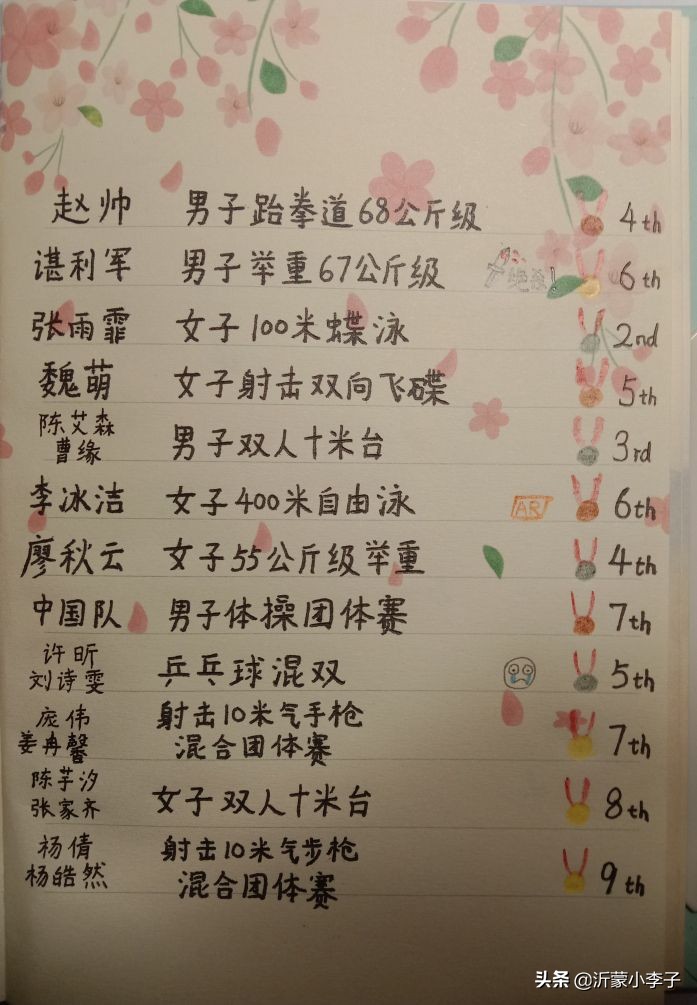 赵帅 男子跆拳道68公斤级 4th
谌利军 男子举重67公斤级 绝杀! 6th
张雨霏 女子100米蝶泳 2nd
魏萌 女子射击双向飞碟 5th
陈艾森
曹缘 男子双人十米台 3rd
李冰洁 女子400米自由泳 AR 6th
廖秋云 女子55公斤级举重 4th
中国队 男子体操团体赛 7th
许昕
刘诗雯 乒乓球混双 5th
庞伟 射击10米气手枪
姜冉馨 混合团体赛 7th
陈芋汐
张家齐 女子双人十米台 8th
杨倩 射击10米气步枪
杨皓然 混合团体赛 9th
头条 @沂蒙小李子